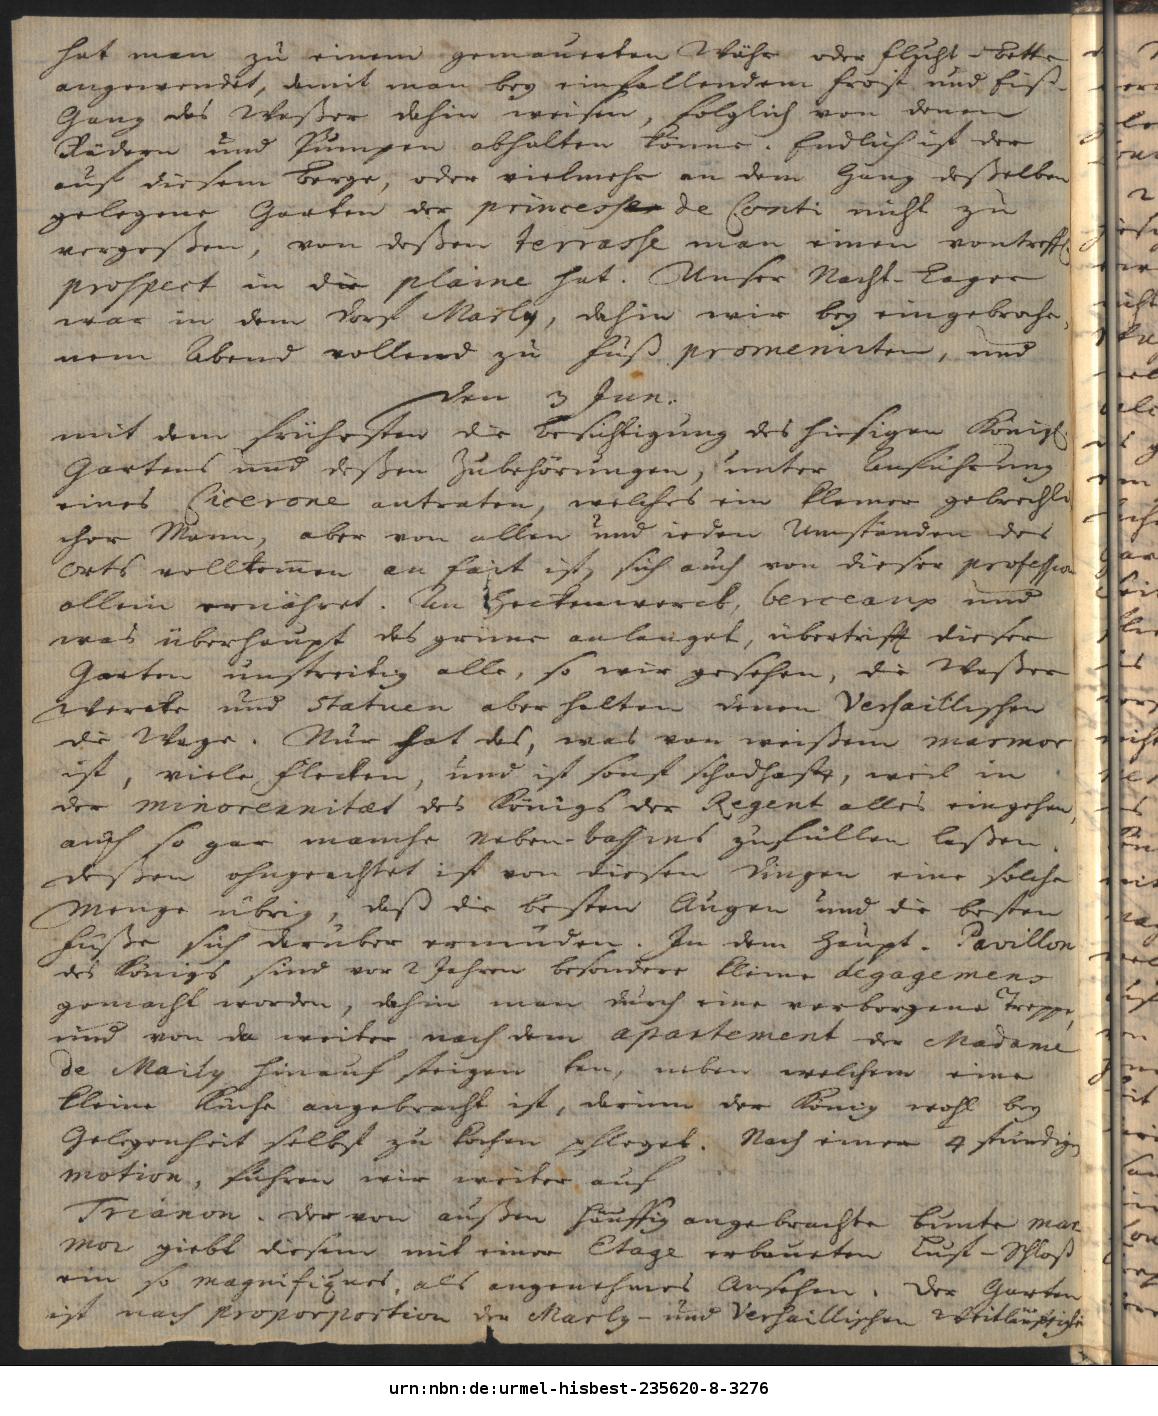 hat man zu einem gemauerten Währ oder Flucht-Bette
angewendet, damit man bey einfallendem Frost und Eiß-
Gang das Waßer dahin weisen, folglich von denen
Rädern und Pumpen abhalten könne. Endlich ist der
auf diesem Berge, oder vielmehr an dem Hang deßelben
gelegene Garten der princesse de Conti nicht zu
vergeßen, von deßen terrasse man einen vortreffl.
prospect in die plaine hat. Unser Nacht-Lager
war in dem Dorf Marly, dahin wir bey eingebroche-
nem Abend vollend zu Fuß promenirten, und
den 3 Jun.
mit dem frühesten die Besichtigung des hiesigen Königl.
Gartens und deßen Zubehörungen, unter Anführung
eines Cicerone antraten, welches ein kleiner gebrechli
cher Mann, aber von allen und ieden Umständen des
Orts vollkom̅en au fait ist, sich auch von dieser profession
allein ernähret. An Heckenwerck, berceaux und
was überhaupt das grüne anlanget, übertrifft dieser
Garten unstreitig alle, so wir gesehen, die Waßer
wercke und Statuen aber halten denen Versaillischen
die Wage. Nur hat das, was von weißem marmor
ist, viele Flecken, und ist sonst schadhafft, weil in
der minorennitæt des Königs der Regent alles eingehen,
auch so gar manche Neben-bassins zufüllen laßen.
deßen ohngeachtet ist von diesen Dingen eine solche
Menge übrig, daß die besten Augen und die besten
Füße sich darüber ermüden. In dem Haupt-Pavillon
des Königs sind vor 2 Jahren besondere kleine degagemens
gemacht worden, dahin man durch eine verborgene Treppe,
und von da weiter nach dem apartement der Madame
de Maily hinauf steigen kan, neben welchem eine
kleine Küche angebracht ist, darinn der König wohl bey
Gelegenheit selbst zu kochen pfleget. Nach einer 4 stündigen
motion, fuhren wir weiter auf
Trianon. der von außen häuffig angebrachte bunte mar
mor giebt diesem mit einer Etage erbaueten Lust-Schloß
ein so magnifiques, als angenehmes Ansehen. Der Garten
ist nach proporportion der Marly- und Versaillischen Weitläuftigke
urn:nbn:de:urmel-hisbest-235620-8-3276